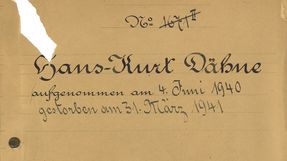 No 1671 II
Hans-Kurt Dähne
aufgenommen am 4. Juni 1940
gestorben am 31. März 1941